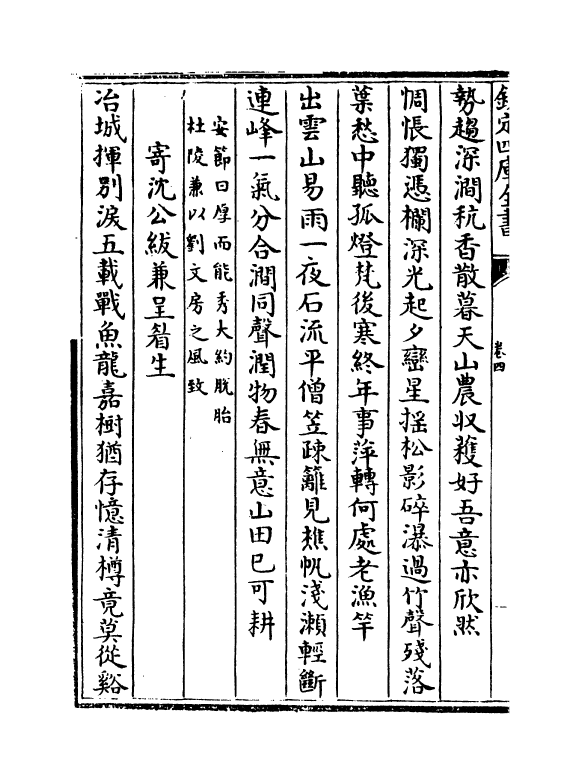 欽定四庫全書
卷四
勢趨深澗秔香散暮天山農收穫好吾意亦欣然
惆悵獨憑欄深光起夕巒星摇松影碎瀑過竹聲殘落
葉愁中聽孤燈梵後寒終年事萍轉何處老漁竿
出雲山易雨一夜石流平僧笠疎籬見樵帆淺瀬輕斷
連峰一氣分合澗同聲潤物春無意山田已可耕
安節曰厚而能秀大約脱胎
杜陵兼以劉文房之風致
寄沈公紱兼呈㸔生
冶城揮别淚五載戰魚龍嘉樹猶存憶清樽竟莫從谿